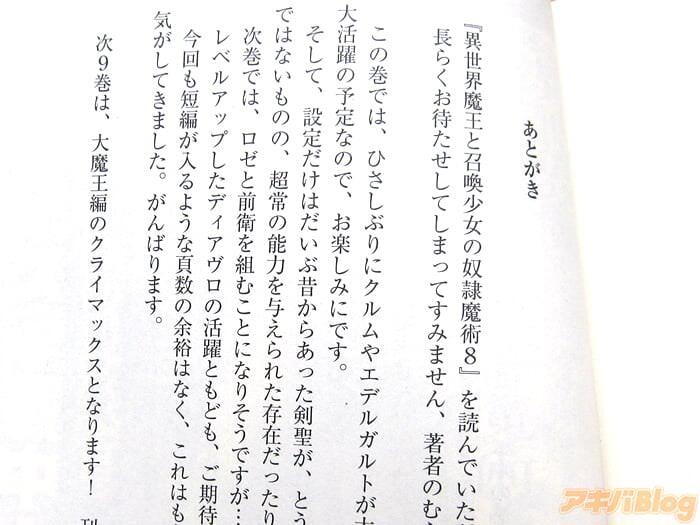 あとがき
『異世界魔王と召喚少女の奴隷魔術８』を読んでいた
長らくお待たせしてしまってすみません、著者のむ
この巻では、ひさしぶりにクルムやエデルガルトが
大活躍の予定なので、お楽しみにです。
そして、設定だけはだいぶ昔からあった剣聖が、とう
ではないものの、超常の能力を与えられた存在だったり
次巻では、ロゼと前衛を組むことになりそうですが…
レベルアップしたディアヴロの活躍ともども、ご期待
今回も短編が入るような頁数の余裕はなく、これはも
気がしてきました。がんばります。
次９巻は、大魔王編のクライマックスとなります！　刊
アキバBlog